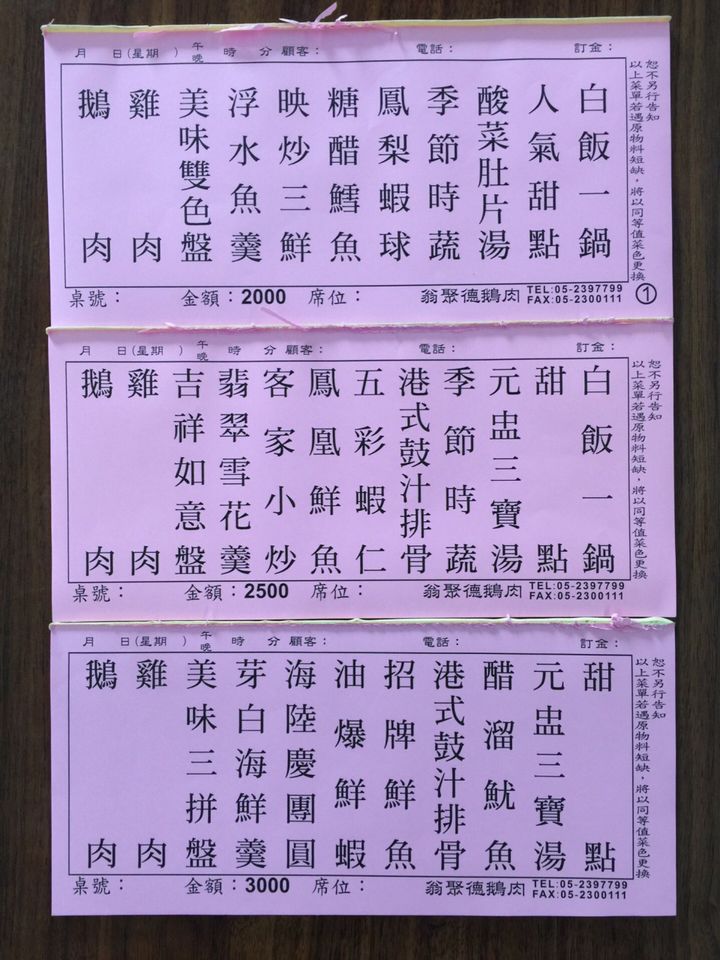 月 日(星期 ) 午晚 時 分 顧客： 電話： 訂金：
鵝肉
雞肉
美味雙色盤
浮水魚羹
映炒三鮮
糖醋鱈魚
鳳梨蝦球
季節時蔬
酸菜肚片湯
人氣甜點
白飯一鍋
以上菜單若遇原物料短缺，將以同等值菜色更換
恕不另行告知
桌號： 金額：2000 席位： 翁聚德鵝肉 TEL:05-2397799
FAX:05-2300111
①
月 日(星期 ) 午晚 時 分 顧客： 電話： 訂金：
鵝肉
雞肉
吉祥如意盤
翡翠雪花羹
客家小炒
鳳凰鮮魚
五彩蝦仁
港式鼓汁排骨
季節時蔬
元盅三寶湯
甜點
白飯一鍋
以上菜單若遇原物料短缺，將以同等值菜色更換
恕不另行告知
桌號： 金額：2500 席位： 翁聚德鵝肉 TEL:05-2397799
FAX:05-2300111
月 日(星期 ) 午晚 時 分 顧客： 電話： 訂金：
鵝肉
雞肉
美味三拼盤
芽白海鮮羹
海陸慶團圓
油爆鮮蝦
招牌鮮魚
港式鼓汁排骨
醋溜魷魚
元盅三寶湯
甜點
以上菜單若遇原物料短缺，將以同等值菜色更換
恕不另行告知
桌號： 金額：3000 席位： 翁聚德鵝肉 TEL:05-2397799
FAX:05-2300111